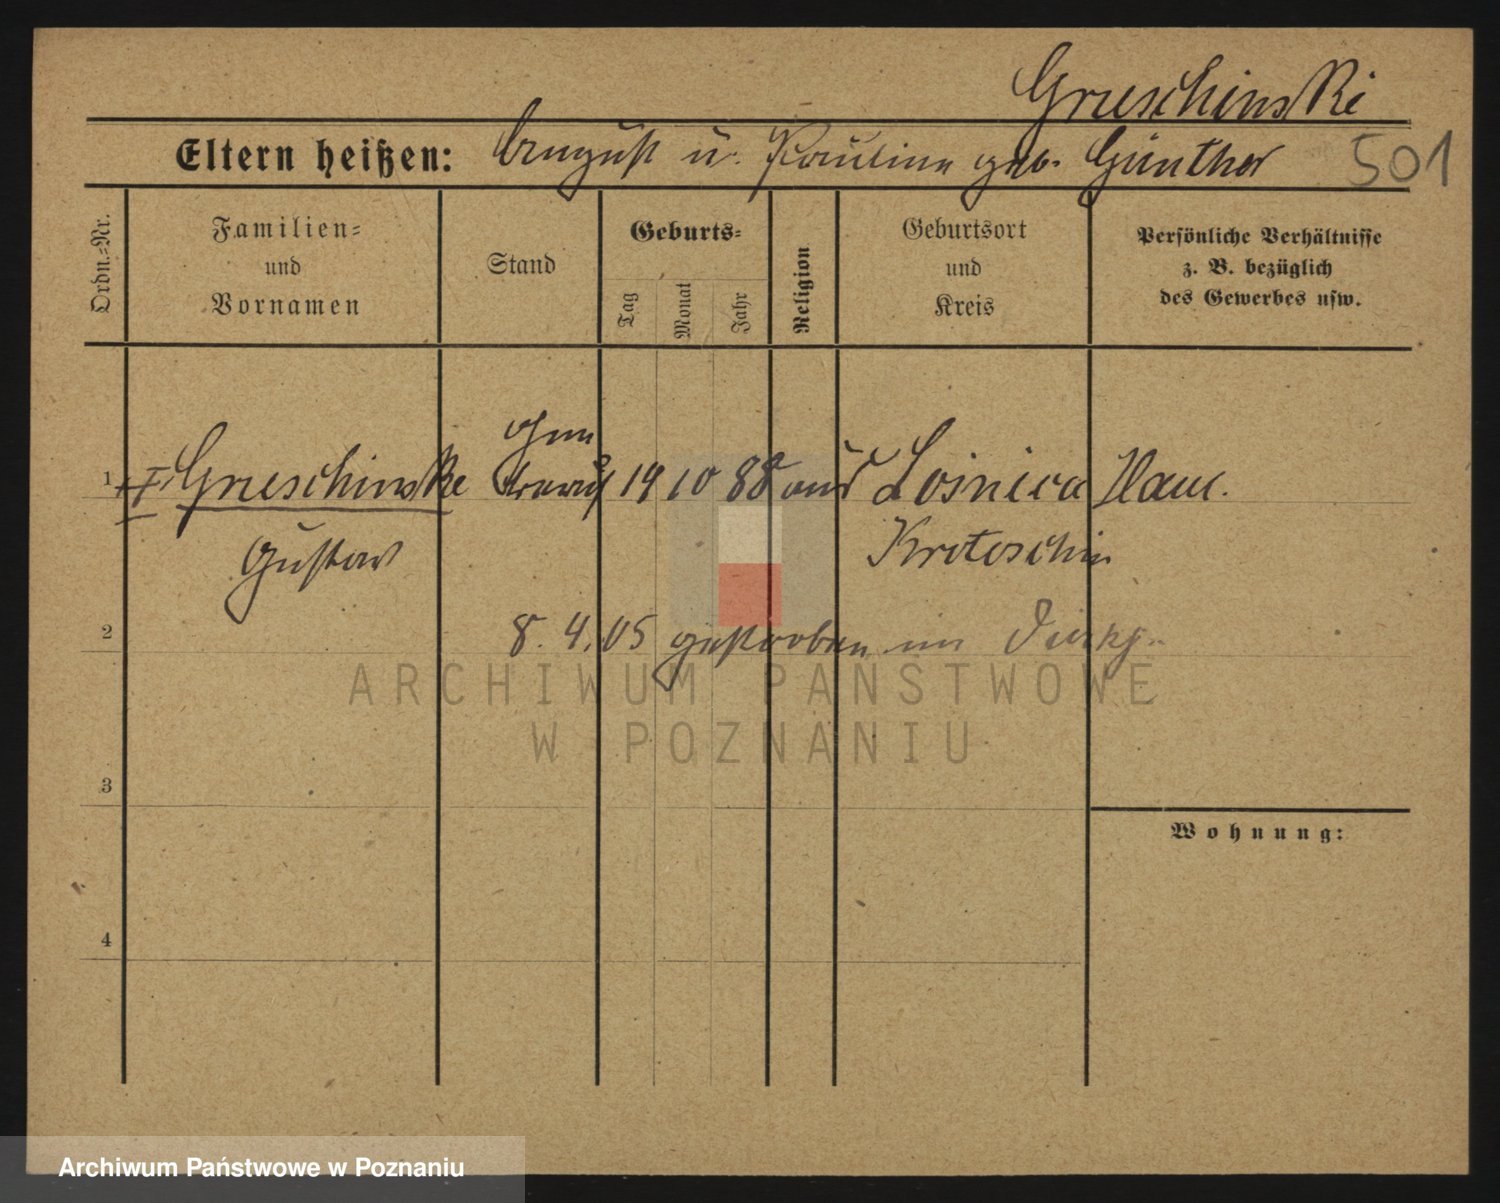 Grueschinski
Eltern heißen: August u. Pauline geb. Günther 501
Ordn.=Nr.
Familien=
und
Vornamen
Stand
Geburts=
Tag
Monat
Jahr
Religion
Geburtsort
und
Kreis
Persönliche Verhältnisse
z. B. bezüglich
des Gewerbes usw.
ohne
1 Grueschinske Beruf 19 10 88 Losnica
Gustav Krotoschin
2
8. 4. 05 gestorben im
ARCHIWUM PAŃSTWOWE
W POZNANIU
3
Wohnung:
4
Archiwum Państwowe w Poznaniu